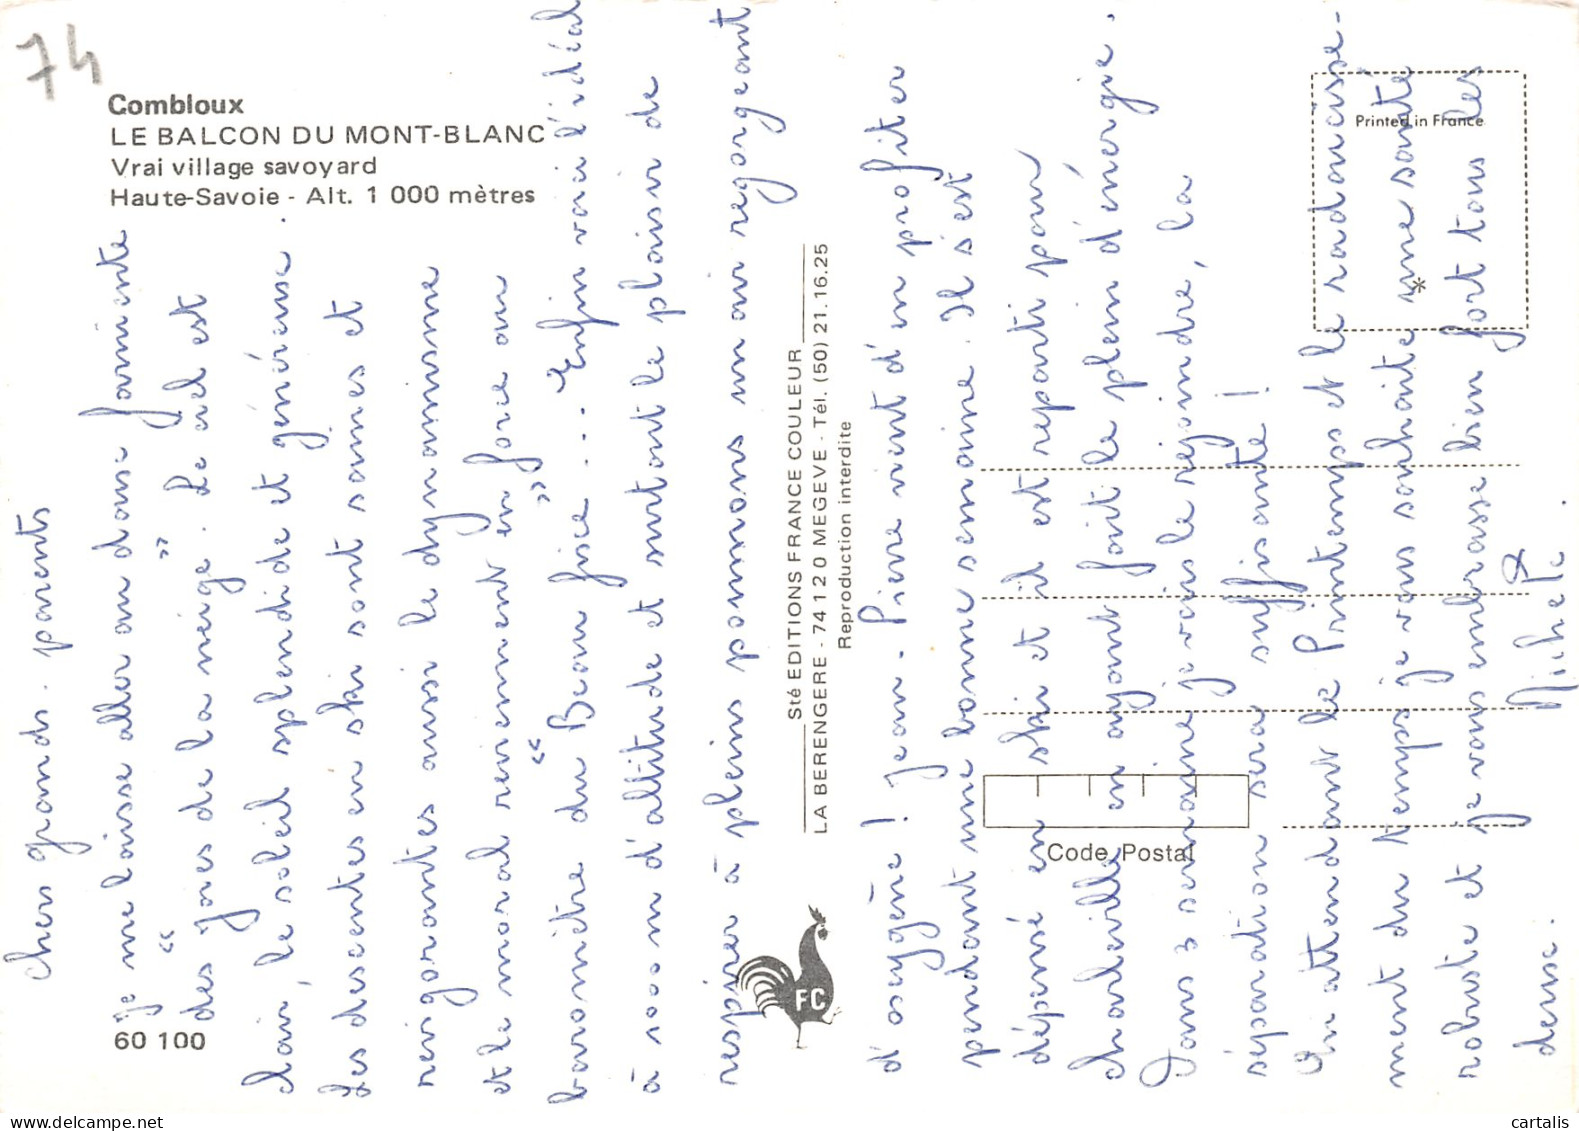 74
Combloux
LE BALCON DU MONT-BLANC
Vrai village savoyard
Haute-Savoie - Alt. 1 000 mètres
Chers grands-parents
je me laisse aller au doux farniente
des "joies de la neige". Le ciel est
clair, le soleil splendide et généreuse.
Les descentes en ski sont saines et
revigorantes aussi le dynamisme
et le moral reviennent en force au
baromètre du "Beau fixe"... Enfin voici l'idéal
à 1000 m d'altitude et surtout le plaisir de
respirer à pleins poumons un air regorgeant
d'oxygène ! Jean-Pierre vient d'en profiter
pendant une bonne semaine. Il s'est
dépensé en ski et il est reparti pour
Charleville en ayant fait le plein d'énergie.
Dans 3 semaines je vais le rejoindre, la
séparation sera suffisante !
En attendant le Printemps et le radoucisse-
ment du temps je vous souhaite une santé
robuste et je vous embrasse bien fort tous les
deux.
Michèle
Sté EDITIONS FRANCE COULEUR
LA BERENGERE - 74120 MEGEVE - Tél. (50) 21.16.25
Reproduction interdite
FC
Printed in France
*
Code Postal
60 100
cartalis
www.delcampe.net